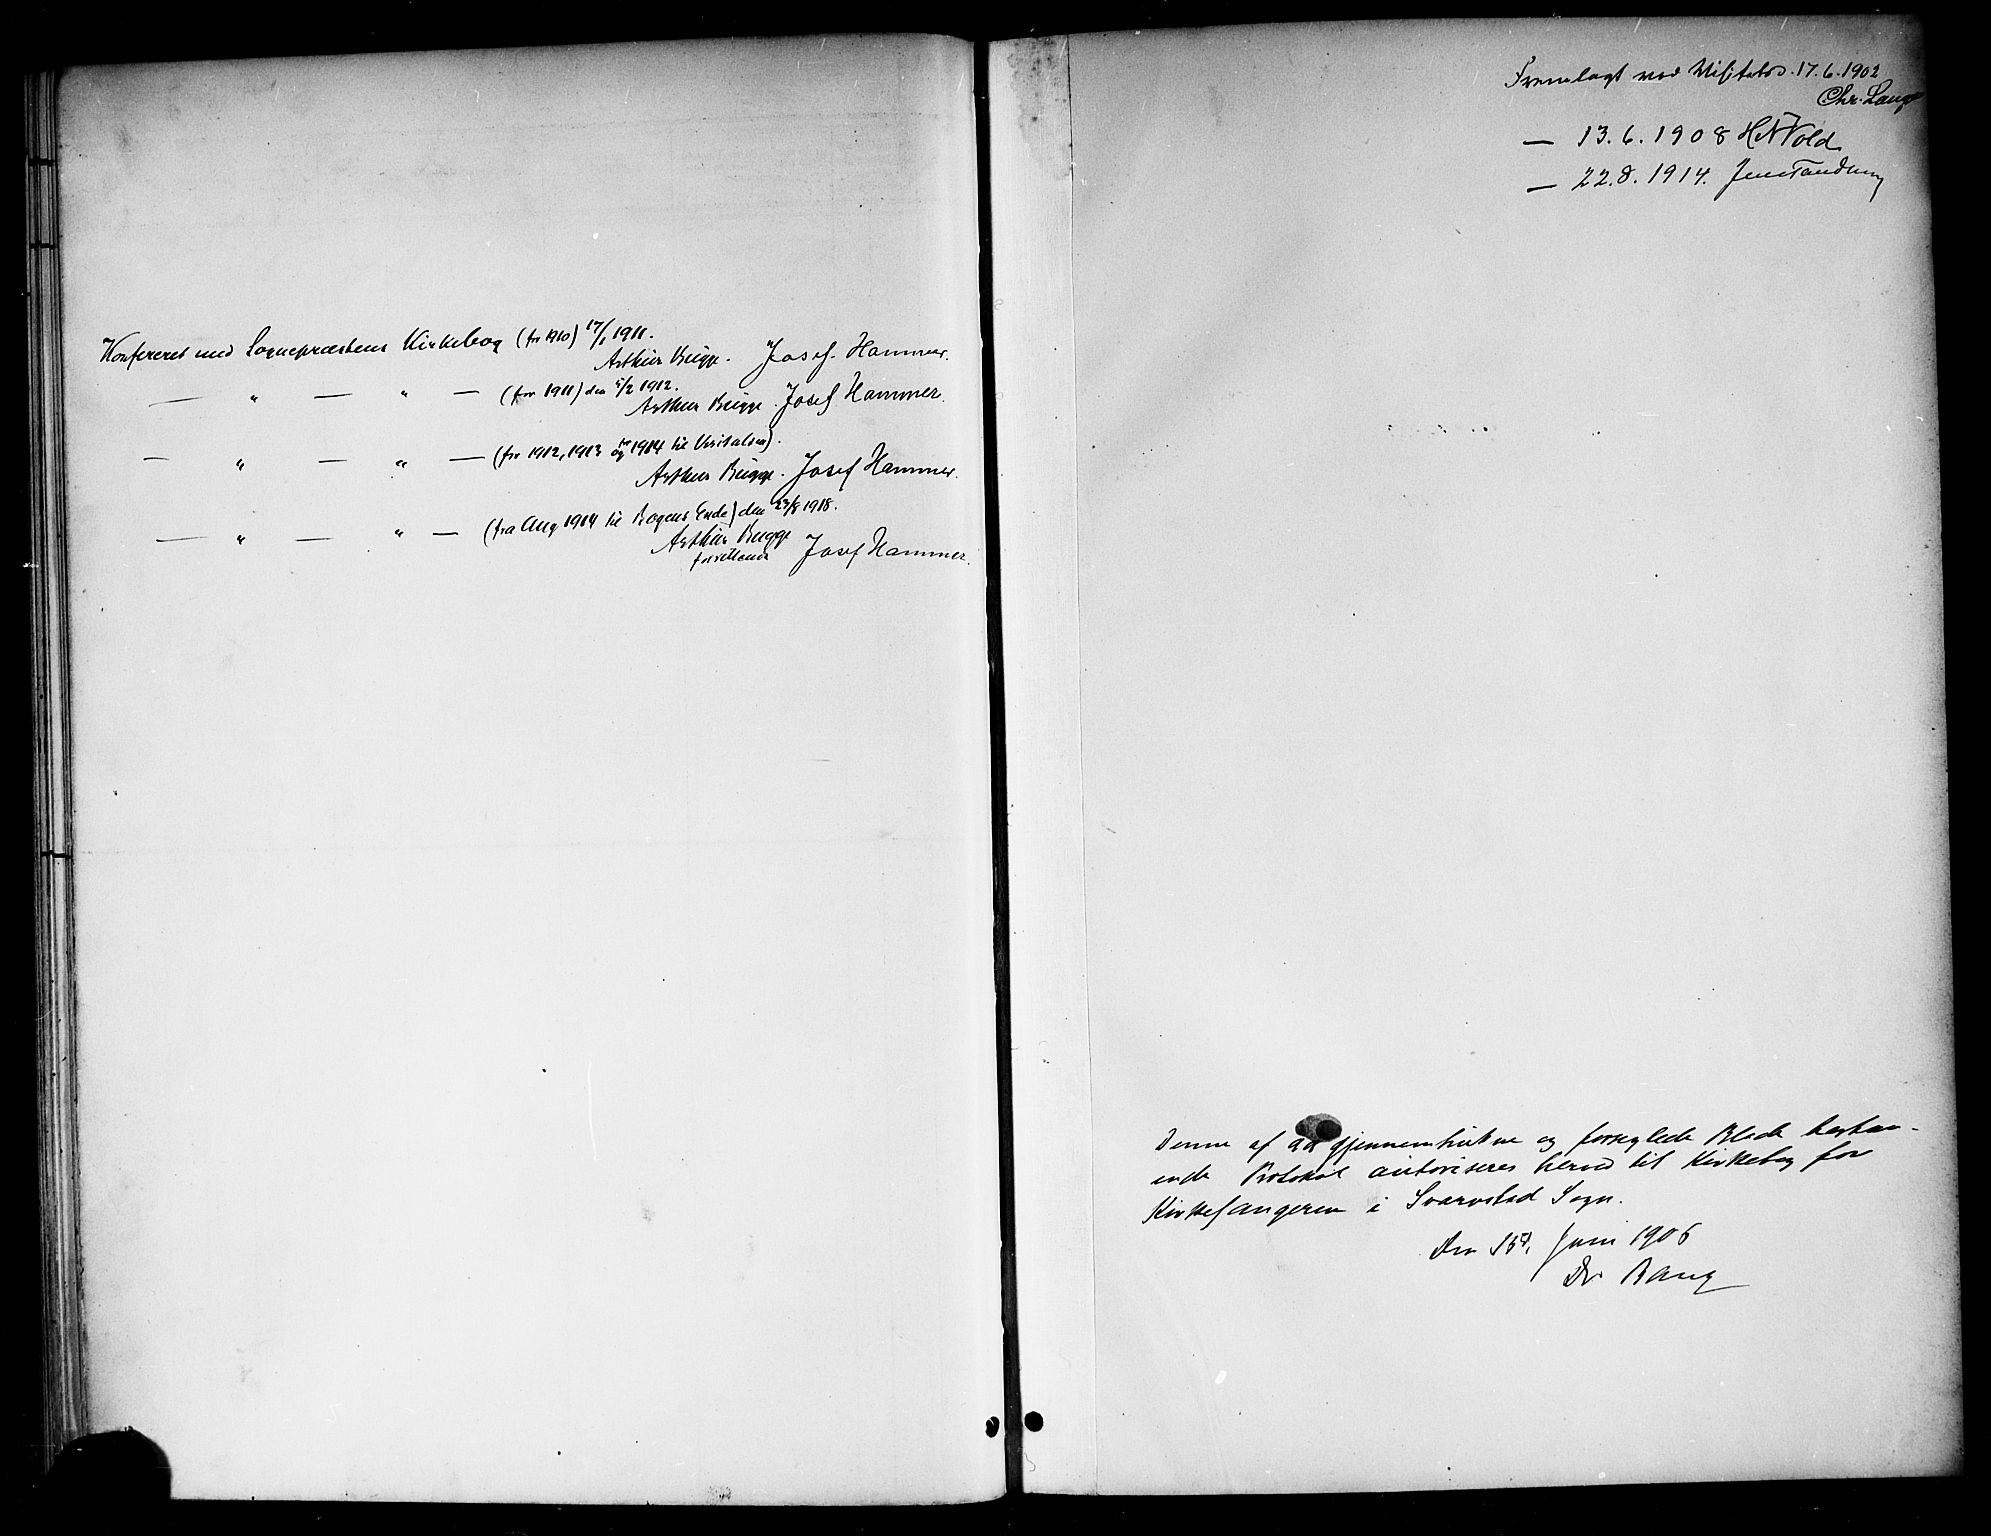 Konfereret med Sognepræstens Kirkebog (for 1910) 17/1 1911.
Arthur Bugge. Josef Hammer.
— " — " — (for 1911) den 5/2 1912.
Arthur Bugge. Josef Hammer.
— " — " — (for 1912, 1913 og 1914 til Visitatsen).
Arthur Bugge. Josef Hammer.
— " — " — (fra Aug 1914 til Bogens Ende) den 23/8 1918.
Arthur Bugge Josef Hammer.
forrettende
Fremlagt ved Visitats. 17.6.1902
Chr. Lange
— 13.6.1908 H N Vold
— 22.8.1914. Jens Tandberg
Denne af gjennemtrukne og forseglede Blade bestaa-
ende Protokol autoriseres herved til Kirkebog for
Kirkesangeren i Svarvstad Sogn.
Den Juni 1906
Dr Bang